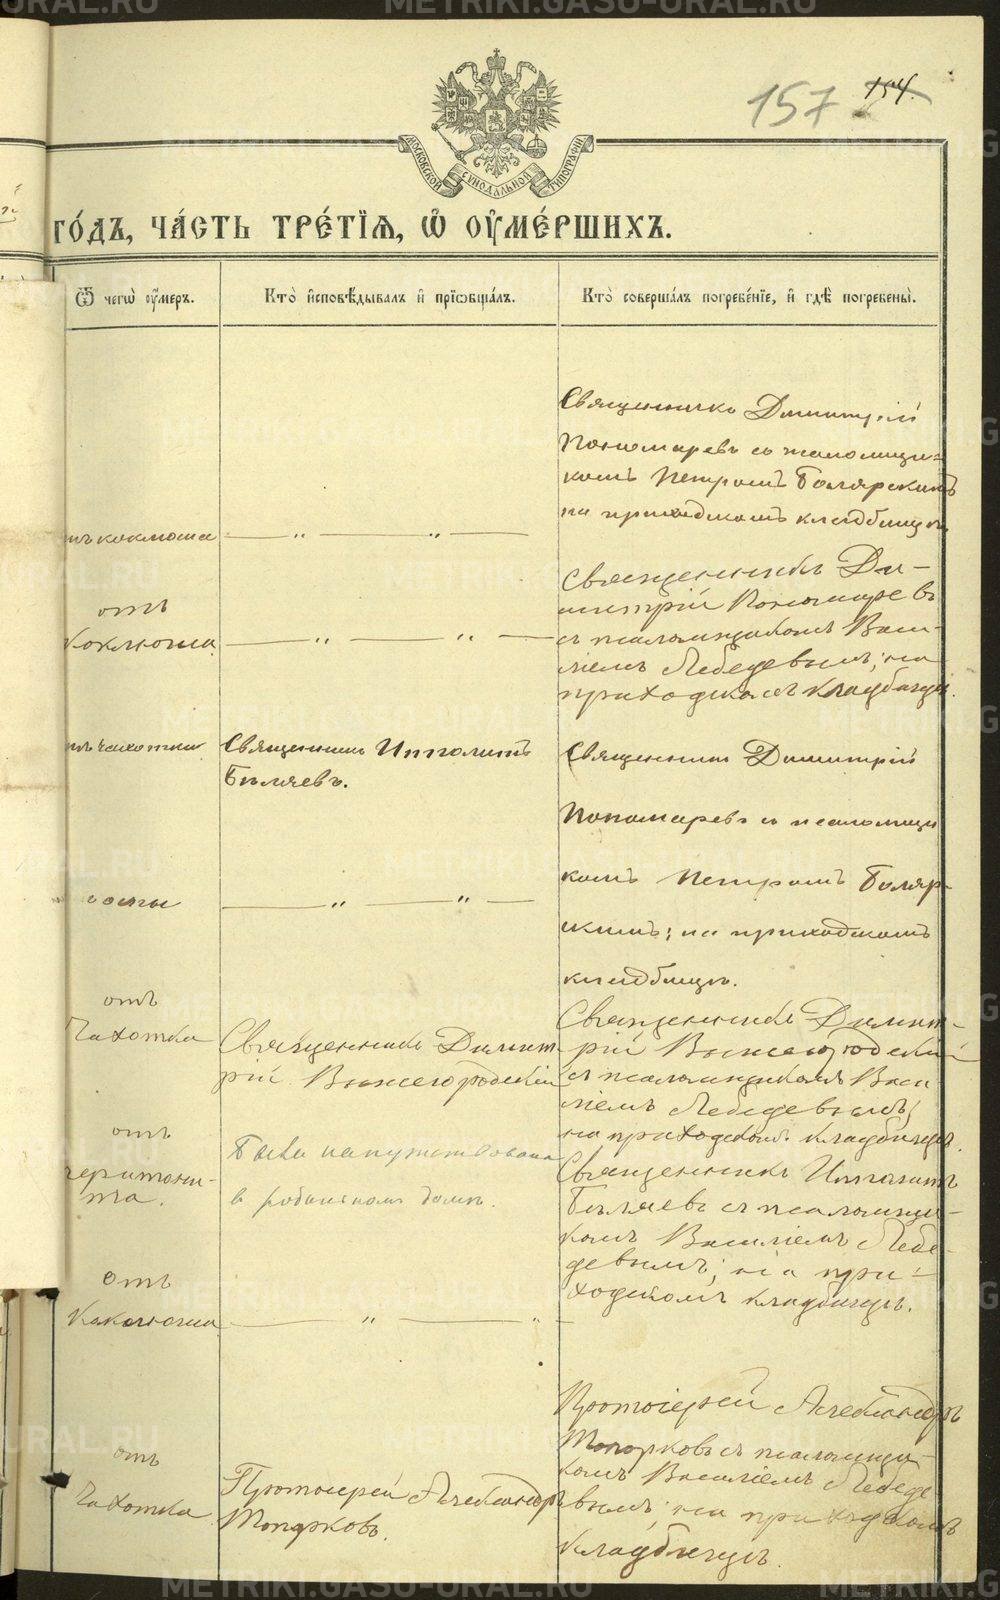 157 154.
МОСКОВСКОЙ СѴНОДАЛЬНОЙ ТИПОГРАФІИ
ГО́ДЪ, ЧА́СТЬ ТРЕ́ТІѦ, Ѿ ОУ҆МЕ́РШИХЪ.
Ѿ чегѡ̀ оу҆́меръ.
Кто̀ и҆сповѣ́дывалъ и҆ прїѡбща́лъ.
Кто̀ соверша́лъ погребе́нїе, и҆ гдѣ̀ погребены̀.
Священникъ Димитрій
Пономаревъ съ псаломщи=
комъ Петромъ Боярскимъ
на приходскомъ кладбищѣ.
тъ коклюша — „ — „ —
Священникъ Ди-
митрій Пономаревъ
съ псаломщикомъ Васи-
ліемъ Лебедевымъ; на
приходскомъ кладбищѣ.
отъ
Коклюша. — „ — „ —
тъ чахотки
Священникъ Ипполитъ
Бѣляевъ.
Священникъ Димитрій
Пономаревъ съ псаломщи
комъ Петромъ Бояр-
скимъ; на приходскомъ
кладбищѣ.
оспы — „ — „ —
отъ
Чахотка
Священникъ Димит-
рій Вышегородскій
Священникъ Димит-
рій Вышегородскій
съ псаломщикомъ Васи
ліемъ Лебедевымъ;
на приходском. кладбищѣ.
отъ
перитони-
та.
Была напутствована
в родильном домѣ.
Священникъ Ипполитъ
Бѣляевъ съ псаломщи-
комъ Василіемъ Лебе-
девымъ; на при-
ходскомъ кладбищѣ.
отъ
Коклюша — „ — „
отъ
Чахотка
Протоіерей Александръ
Топорковъ.
Протоіерей Александръ
Топорковъ съ псаломщи-
комъ Василіемъ Лебеде
вымъ; на приходскомъ
кладбищѣ.
METRIKI.GASU-URAL.RU